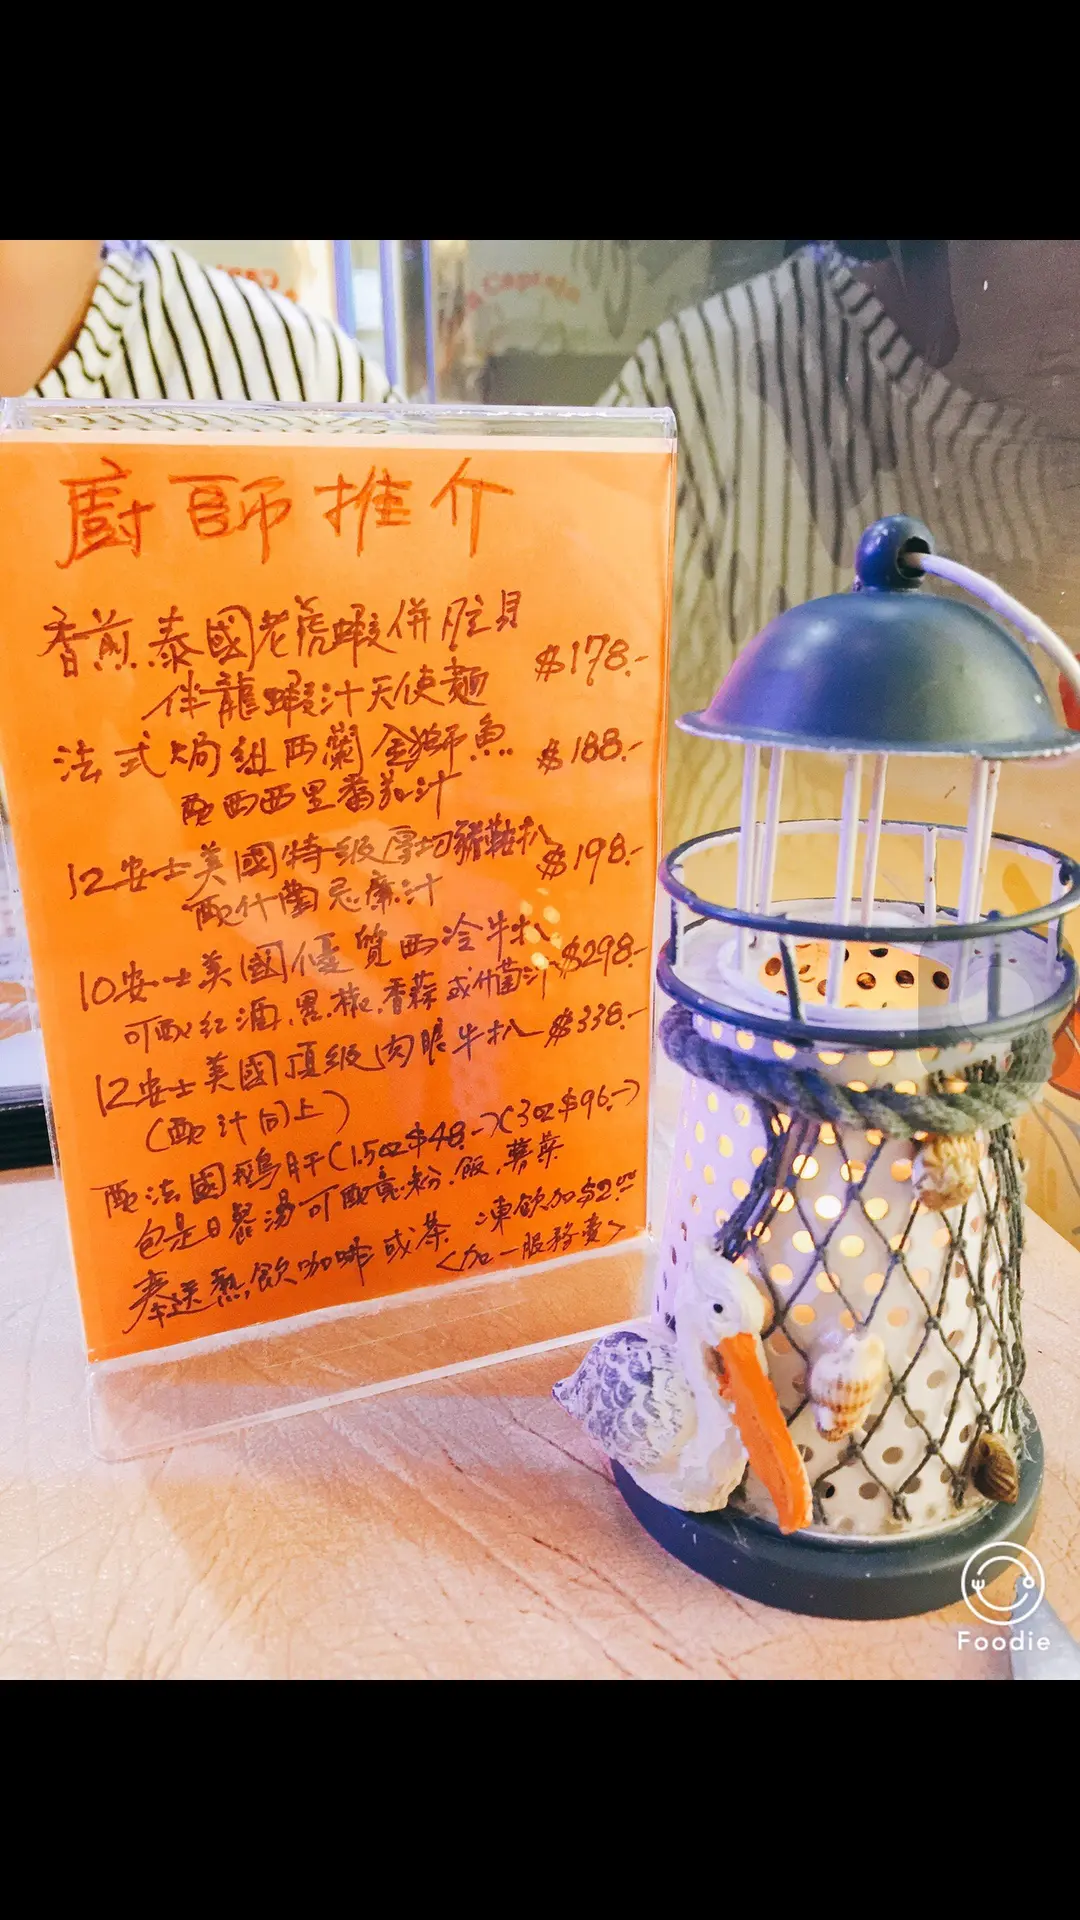 Captain
廚師推介
香煎泰國老虎蝦併帶
伴龍蝦汁天使麵 $178.-
法式焗紐西蘭金獅魚 $188.-
配西西里番茄汁
12安士美國特級厚切豬鞍扒 $198.-
配什菌忌廉汁
10安士美國優質西冷牛扒 $298.-
可配紅酒.黑椒.香蒜或什菌汁
12安士美國頂級肉眼牛扒 $338.-
(配汁同上)
配法國鵝肝(1.5oz$48.-)(3oz$96.-)
包是日餐湯可配意粉.飯.薯菜
奉送熱飲咖啡或茶 凍飲加$2.00
<加一服務費>
Foodie